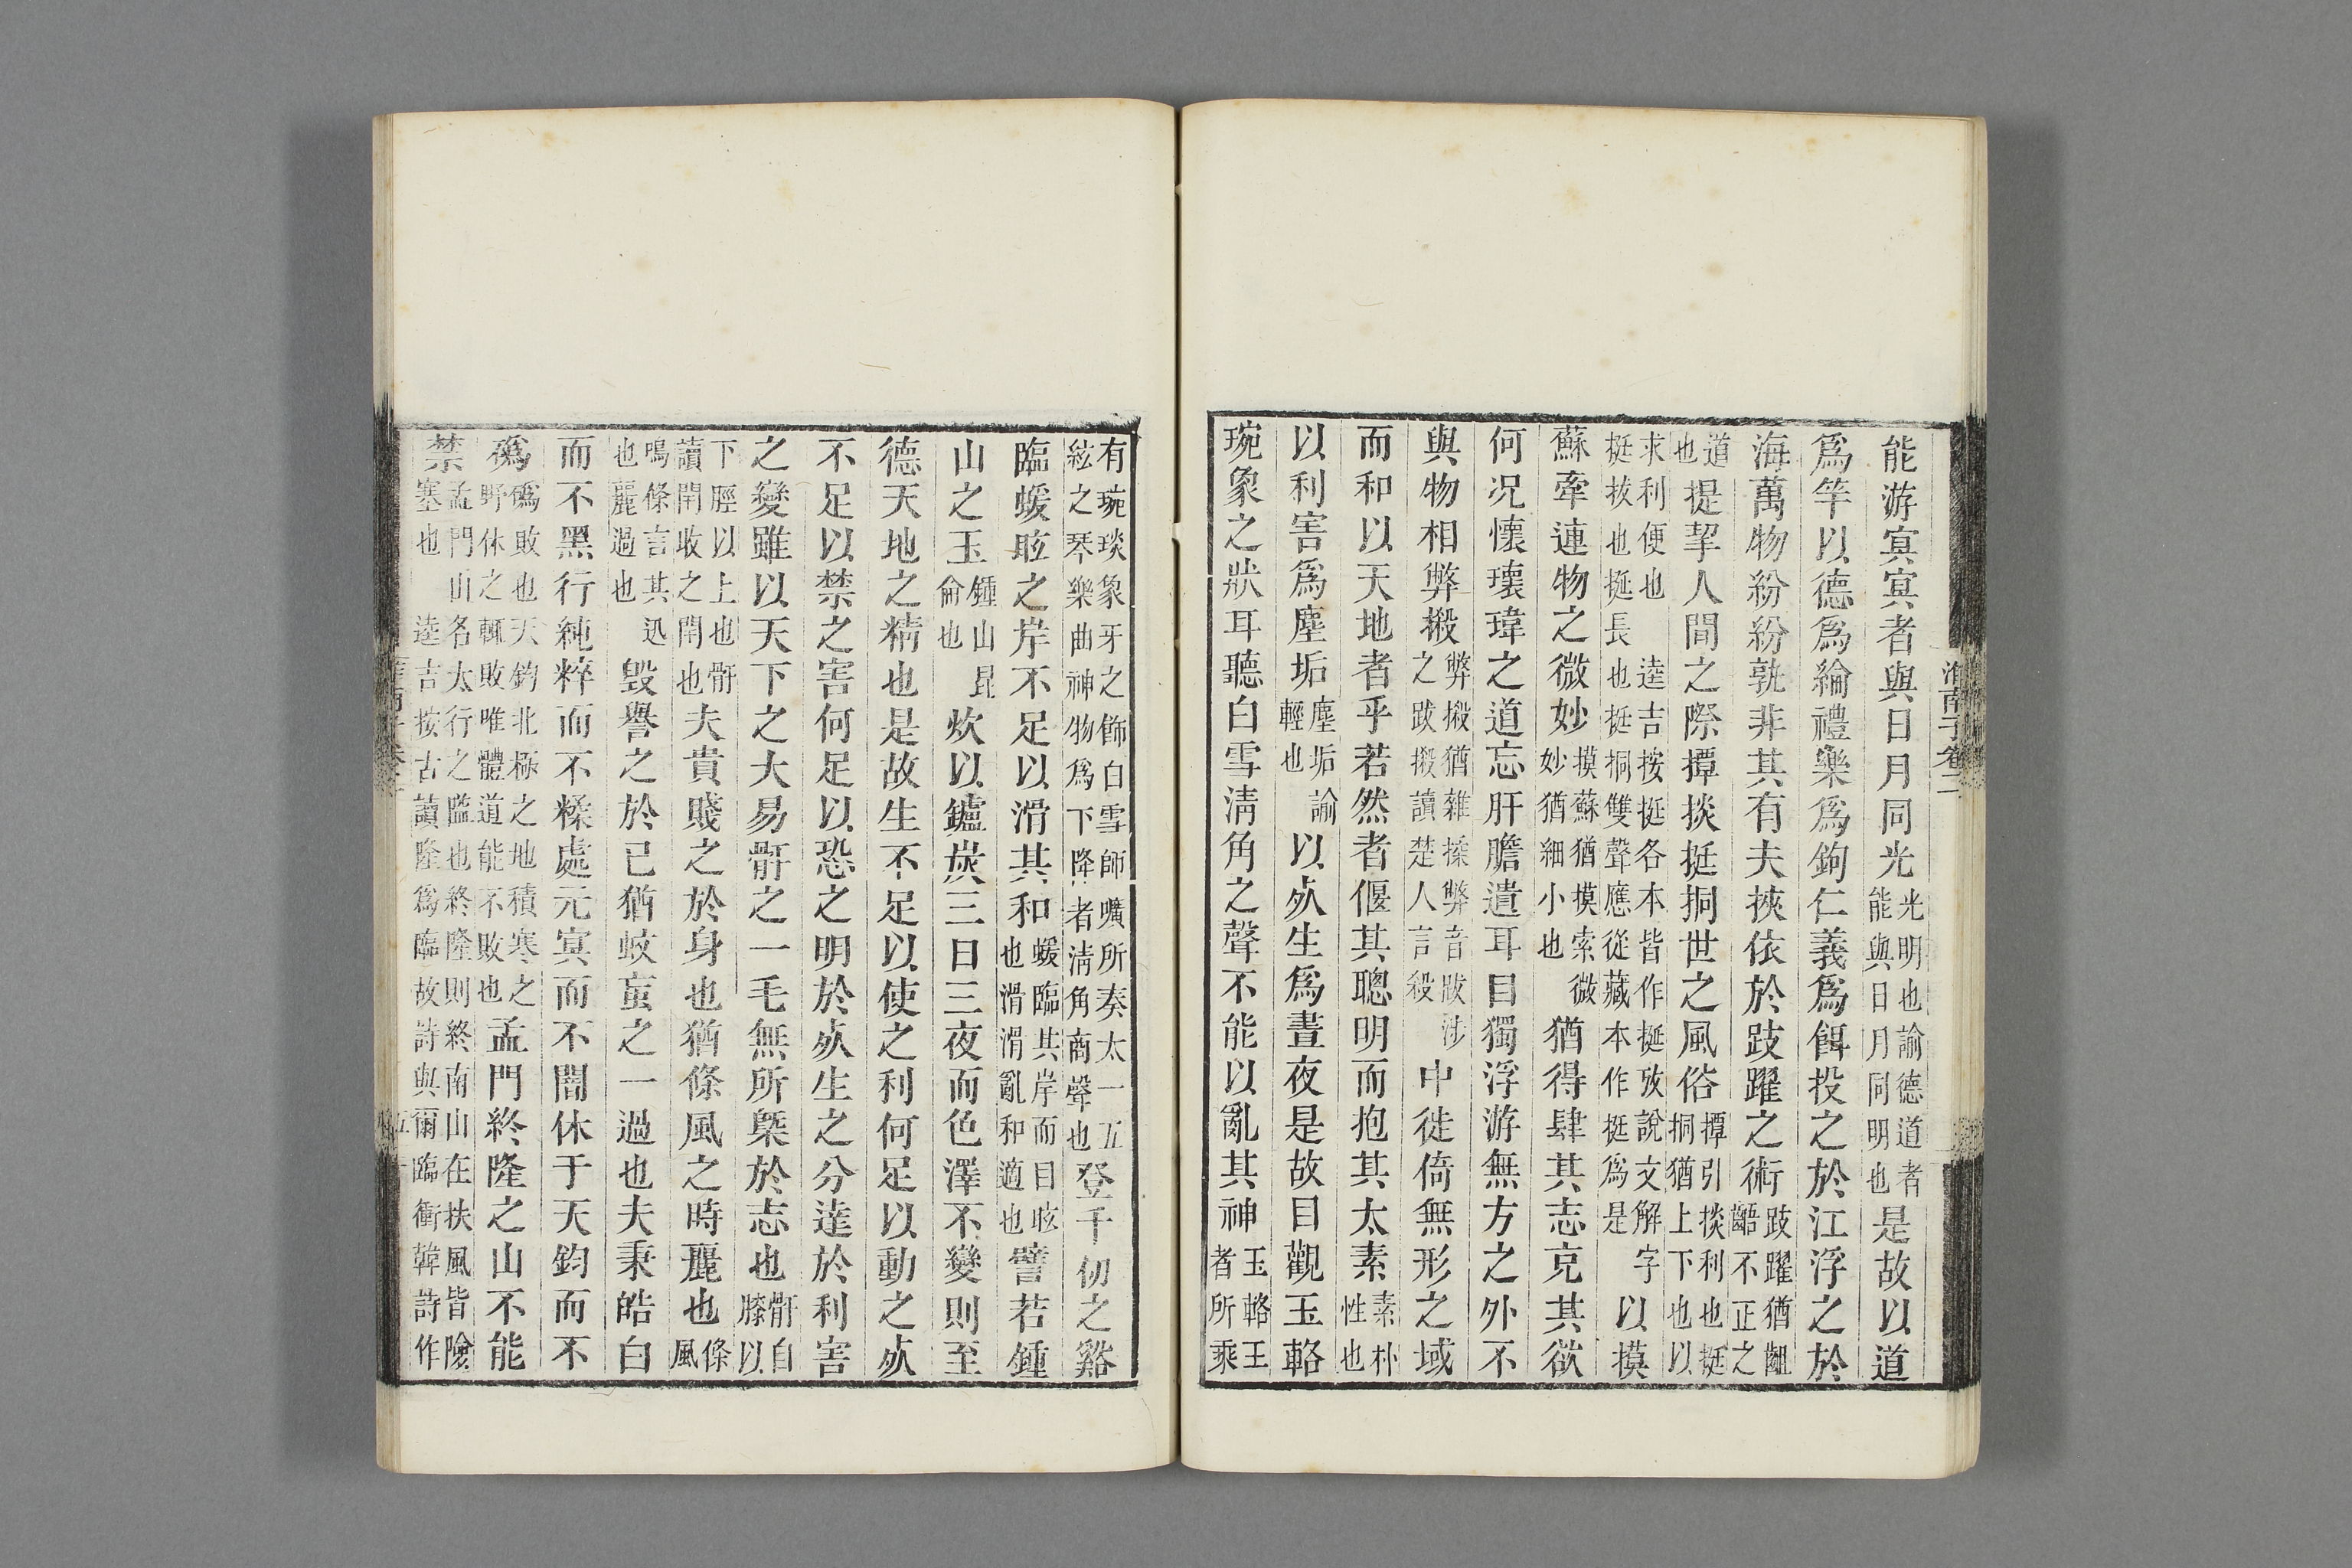 淮南子卷二
能游冥冥者與日月同光光明也諭德道者能與日月同明也是故以道
爲竿以德爲綸禮樂爲鉤仁義爲餌投之於江浮之於
海萬物紛紛孰非其有夫挾依於跂躍之術跂躍猶齟齬不正之
道也提挈人間之際撢掞挺挏世之風俗撢引掞利也挺挏猶上下也以
求利便也挺拔也挻長也逵吉按挻各本皆作挺攷說文解字挺挏雙聲應從藏本作挺爲是以摸
蘇牽連物之微妙摸蘇猶摸索微妙猶細小也猶得肆其志克其欲
何况懷瓌瑋之道忘肝膽遺耳目獨浮游無方之外不
與物相弊摋弊摋猶雜揉弊音跋涉之跋摋讀楚人言殺中徙倚無形之域
而和以天地者乎若然者偃其聰明而抱其太素素朴性也
以利害爲塵垢塵垢諭輕也以㱙生爲晝夜是故目觀玉輅
琬象之狀耳聽白雪淸角之聲不能以亂其神玉輅王者所乘
有琬琰象牙之飾白雪師曠所奏太一五絃之琴樂曲神物爲下降者淸角商聲也登千仞之谿
臨蝯眩之岸不足以滑其和蝯臨其岸而目眩也滑滑亂和適也譬若鍾
山之玉鍾山昆侖也炊以鑪炭三日三夜而色澤不變則至
德天地之精也是故生不足以使之利何足以動之㱙
不足以禁之害何足以恐之明於㱙生之分達於利害
之變雖以天下之大易骭之一毛無所槩於志也骭自膝以
下脛以上也骭讀閈收之閈也夫貴賤之於身也猶條風之時麗也條風
鳴條言其迅也麗過也毀譽之於己猶蚊䖟之一過也夫秉皓白
而不黑行純粹而不糅處元冥而不闇休于天鈞而不
䃣䃣敗也天鈞北極之地積寒之野休之輒敗唯體道能不敗也孟門終隆之山不能
禁孟門山名太行之隘也終隆則終南山在扶風皆險塞也逵吉按古讀隆爲臨故詩與爾臨衝韓詩作